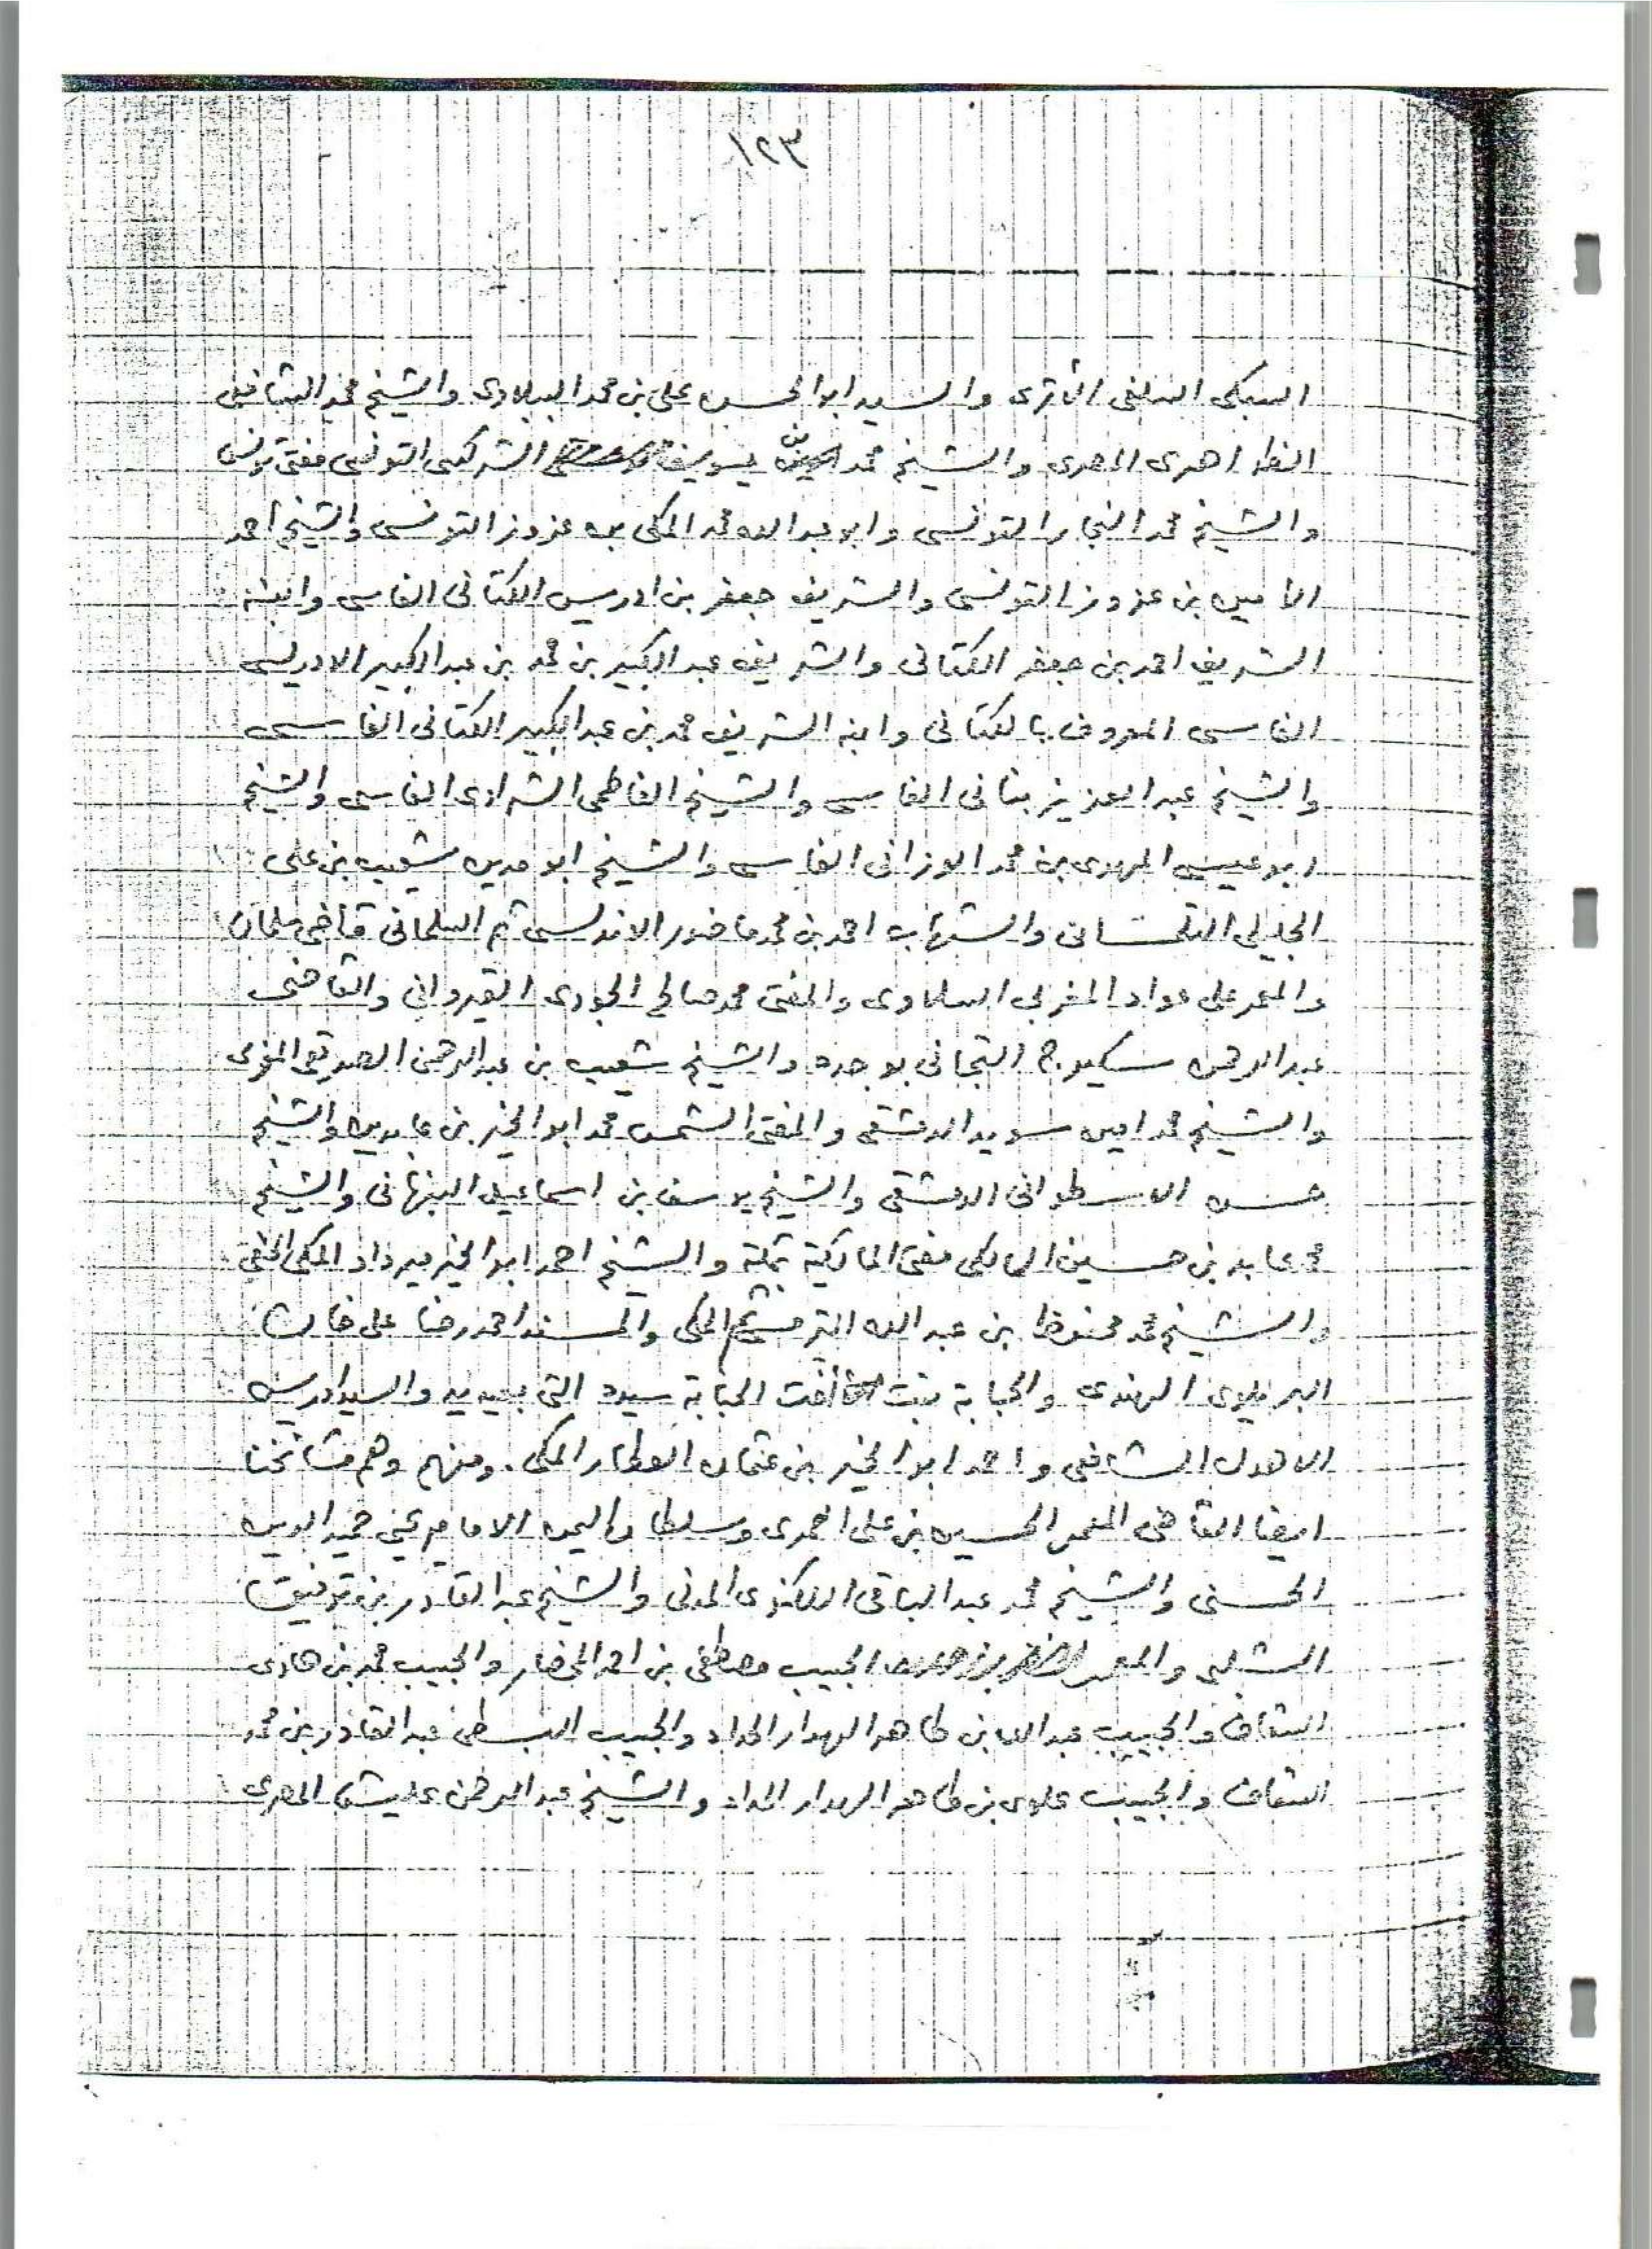 ١٢٣
السبكى السلفى الأثرى والسيد ابو الحسن على بن محمد الببلاوى والشيخ محمد الشافعى
الظواهرى المصرى والشيخ محمد بن يوسف التركى التونسى مفتى تونس
والشيخ محمد النجار التونسى وابو عبد الله محمد المكى بن عزوز التونسى والشيخ احمد
الامين بن عزوز التونسى والشريف جعفر بن ادريس الكتانى الفاسى وابنه
الشريف احمد بن جعفر الكتانى والشريف عبد الكبير بن محمد بن عبد الكبير الادريسى
الفاسى المعروف بالكتانى وابنه الشريف محمد بن عبد الكبير الكتانى الفاسى
والشيخ عبد العزيز بنانى الفاسى والشيخ الفاطمى الشرادى الفاسى والشيخ
ابو عيسى المهدى بن محمد الوزانى الفاسى والشيخ ابو مدين شعيب بن على
الجليلى التلمسانى والشهاب احمد بن محمد الاندلسى ثم السلمانى قاضى
والمعمر على عواد المغربى السلاوى والمفتى محمد صالح الجودى القيروانى والقاضى
عبد الرحمن سكيرج التجانى بوجدة والشيخ شعيب بن عبد الرحمن الصديقى المغربى
والشيخ محمد امين سويد الدمشقى والمفتى الشمس محمد ابو الخير بن عابدين والشيخ
حسن الاسطوانى الدمشقى والشيخ يوسف بن اسماعيل النبهانى والشيخ
محمد عابد بن حسين المالكى مفتى المالكية بمكة والشيخ احمد ابو الخير ميرداد المكى الحنفى
والشيخ محمد محفوظ بن عبد الله الترمسى المكى والمسند احمد رضا على خان
البريلوى الهندى والحبابة بنت اخت الحبابة سيدة التى بعيديد والسيد ادريس
الاهدل الشافعى واحمد ابو الخير بن عثمان العطار المكى. ومنهم وهم مشائخنا
ايضا القاضى المعمر الحسين بن على العمرى وسلطان اليمن الامام يحيى حميد الدين
الحسنى والشيخ محمد عبد الباقى اللكنوى المدنى والشيخ عبد القادر بن توفيق
الشلبى والمعمر الحبيب مصطفى بن احمد المحضار والحبيب محمد بن هادى
السقاف والحبيب عبد الله بن طاهر الهدار الحداد والحبيب عبد القادر بن محمد
السقاف والحبيب علوى بن طاهر الهدار الحداد والشيخ عبد الرحمن عليش المصرى